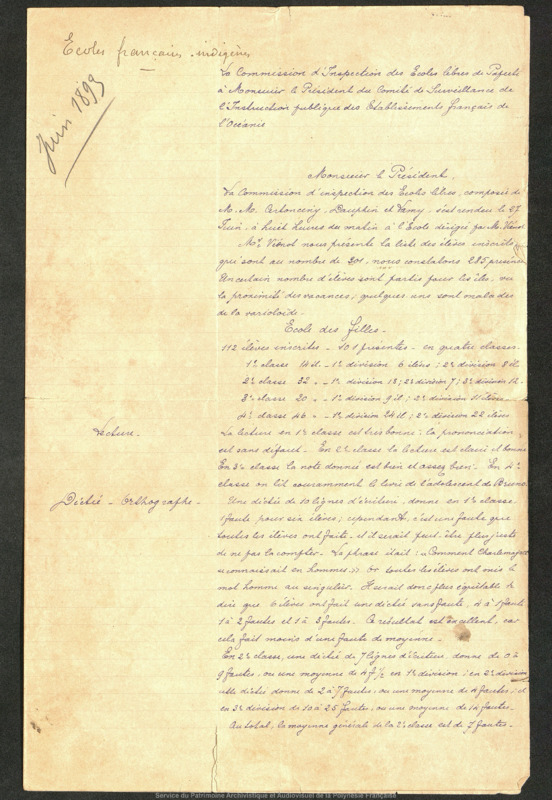 Ecoles françaises indigènes
Juin 1899
La Commission d'Inspection des Ecoles libres de Papeete
à Monsieur le Président du Comité de Surveillance de
l'Instruction publique des Etablissements français de
l'Océanie
Monsieur le Président,
La Commission d'inspection des Ecoles libres, composée de
M. M. Dauphin et s'est rendue le 27
Juin, à huit heures du matin à l'Ecole dirigée par M. Viénot
Mr Viénot nous présente la liste des élèves inscrits
qui sont au nombre de nous constatons 285 présences
Un certain nombre d'élèves sont partis pour les îles, vu
la proximité des vacances, quelques uns sont malades
de la varioloïde.
Ecole des filles.
112 élèves inscrites - 101 présentes - en quatre classes.
1e classe 14 él. - 1e division 6 élèves; 2e division 8 él.
2e classe 32 " - 1e division 13; 2e division 7; 3e division 12.
3e classe 20 " - 1e division 9 él; 2e division 11 élèves
4e classe 46 " - 1e division 24 él; 2e division 22 élèves
Lecture.
La lecture en 1e classe est très bonne; la prononciation
est sans défaut. En 2e classe la lecture est claire et bonne
En 3e classe la note donnée est bien et assez bien. En 4e
classe on lit couramment le livre de l'adolescent de Bruno.
Dictée - Orthographe -
Une dictée de 10 lignes d'écriture, donne en 1e classe
1 faute pour six élèves; cependant, c'est une faute que
toutes les élèves ont faite, et il serait peut-être plus juste
de ne pas la compter. La phrase était: "Comment Charlemagne
se connaissait en hommes." Or toutes les élèves ont mis le
mot homme au singulier. Il serait donc plus équitable de
dire que 6 élèves ont fait une dictée sans faute, 4 à 1 faute
1 à 2 fautes et 1 à 3 fautes. Ce résultat est excellent, car
cela fait moins d'une faute de moyenne.
En 2e classe, une dictée de 7 lignes d'écriture donne de 0 à
9 fautes, ou une moyenne de 4 f ½ en 1e division; en 2e division
cette dictée donne de 2 à 7 fautes, ou une moyenne de 4 fautes; et
en 3e division de 10 à 25 fautes, ou une moyenne de 14 fautes.
Au total, la moyenne générale de la 2e classe est de 7 fautes.
Service du Patrimoine Archivistique et Audiovisuel de la Polynésie Française